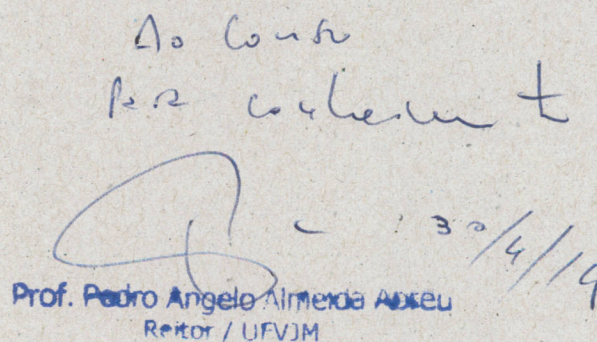 Ao Consu
para conhecimento
30/4/19
Prof. Pedro Angelo Almeida Abreu
Reitor / UFVJM